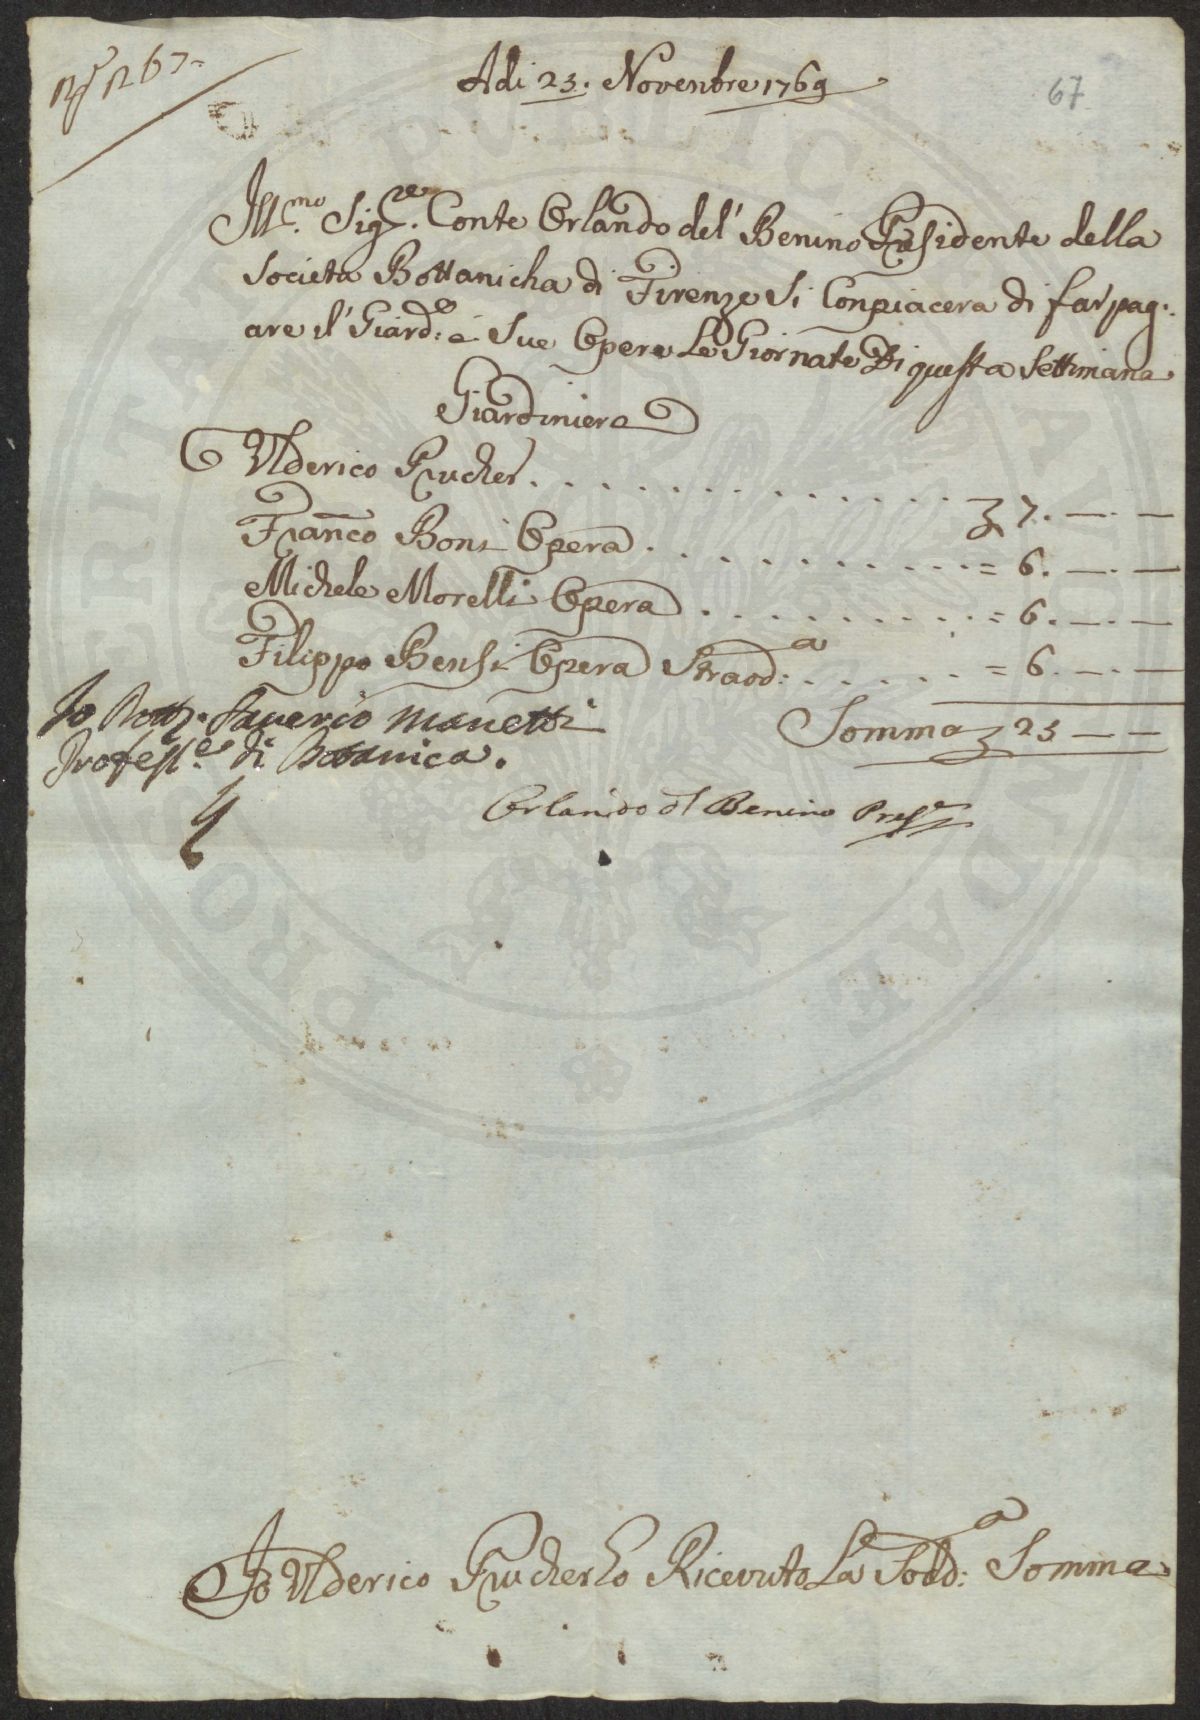 N.º 67.
Adi 23. Novenbre 1769
67
Ill.mo Sig.re Conte Orlando del' Benino Presidente della
Societa Bottanicha di Firenze Si Conpiacera di far pag:
are il' Giard:e e Sue Opere Le Giornate Di questa Settimana
Giardiniere
Ulderico Prucher . . . . . . . . . . . . 7. — —
Franco Boni Opera . . . . . . . . . . . = 6. — —
Michele Morelli Opera . . . . . . . . . = 6. — —
Filippo Bensi Opera Straod:a . . . . . . = 6. — —
Io Dott. Saverio Manetti
Somma 25 — —
Profess.e di Botanica.
Orlando dl Benino Pres.e
Io Ulderico Prucher ho Ricevuto La Sodd:a Somma
PUBLICAE UNDAE PROSPERITATI